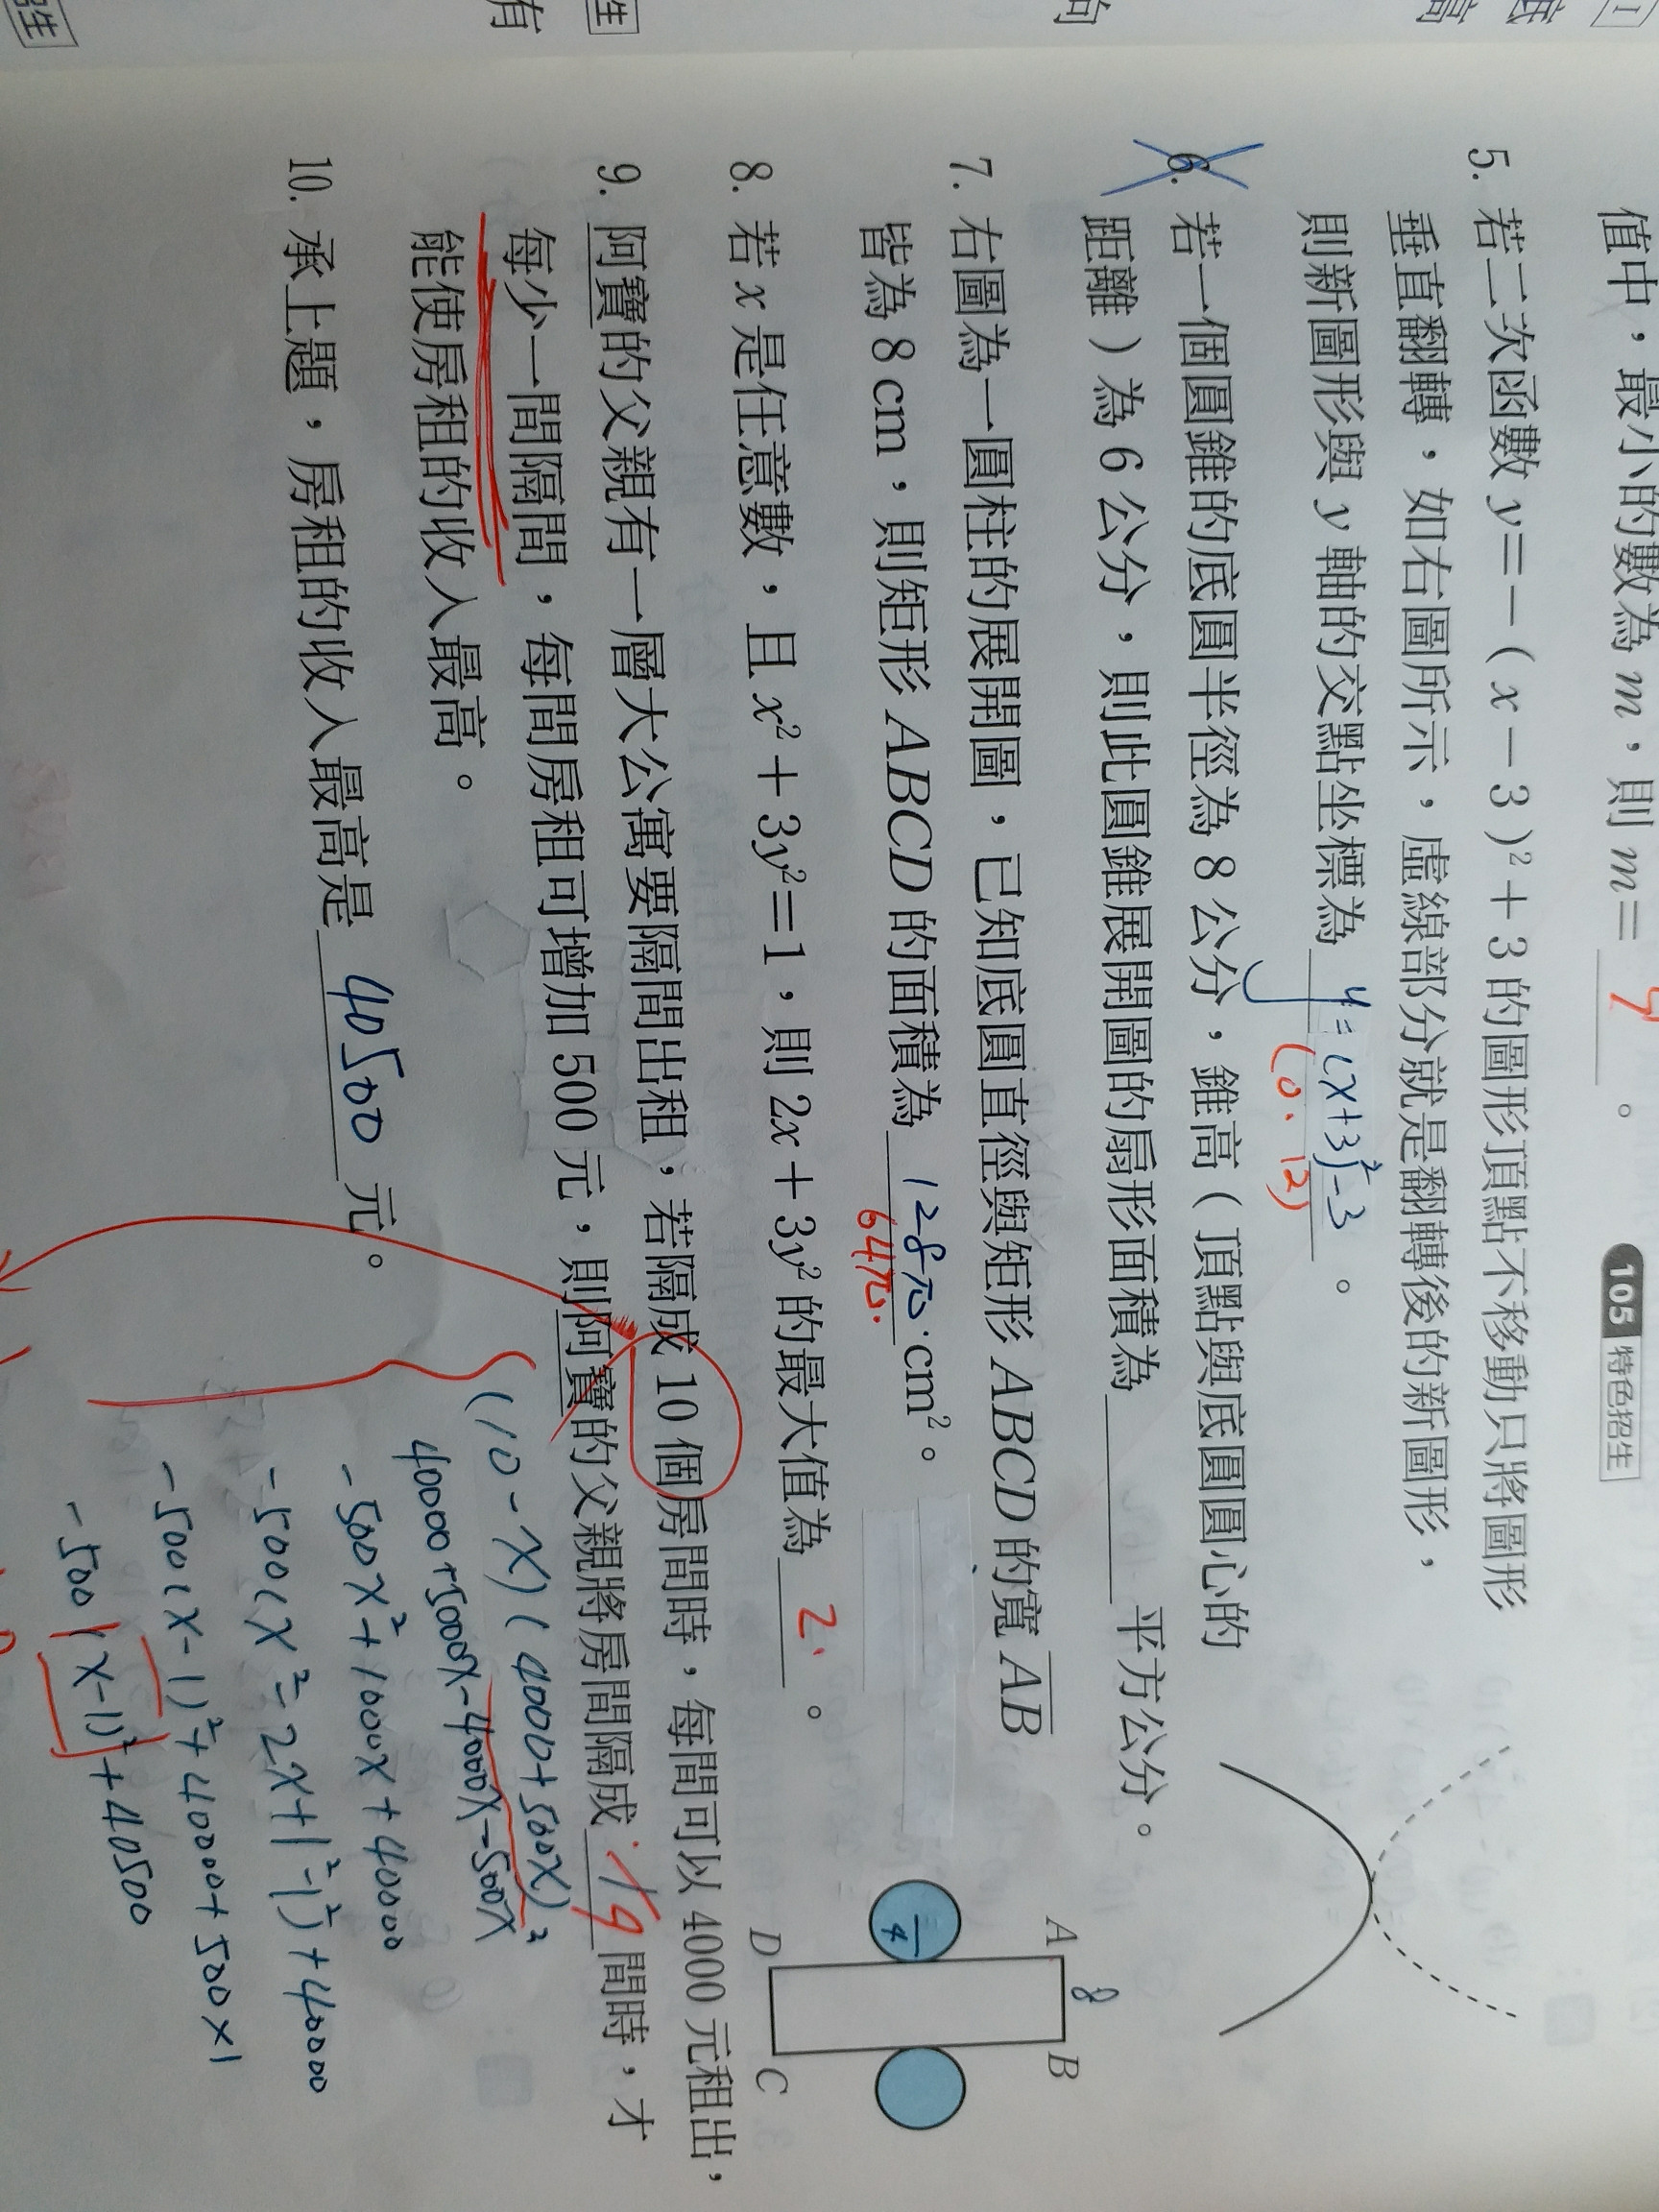 值中，最小的數為 m，則 m＝
。
105 特色招生
5. 若二次函數 y＝－（x－3）²＋3 的圖形頂點不移動只將圖形
垂直翻轉，如右圖所示，虛線部分就是翻轉後的新圖形，
則新圖形與 y 軸的交點坐標為 y=(x+3)²-3 。
(0.12)
6. 若一個圓錐的底圓半徑為 8 公分，錐高（頂點與底圓圓心的
距離）為 6 公分，則此圓錐展開圖的扇形面積為＿＿＿平方公分。
7. 右圖為一圓柱的展開圖，已知底圓直徑與矩形 ABCD 的寬 AB
皆為 8 cm，則矩形 ABCD 的面積為 128π cm²。
64π.
A 8 B
4
D C
8. 若 x 是任意數，且 x²＋3y²＝1，則 2x＋3y² 的最大值為 2. 。
9. 阿寶的父親有一層大公寓要隔間出租，若隔成 10 個房間時，每間可以 4000 元租出，
每少一間隔間，每間房租可增加 500 元，則阿寶的父親將房間隔成 9 間時，才
能使房租的收入最高。
(10-x)(4000+500x)
40000+5000x-4000x-500x²
-500x²+1000x+40000
10. 承上題，房租的收入最高是 40500 元。
-500(x²=2x+1²-1²)+40000
-500(x-1)²+40000+500×1
-500(x-1)²+40500